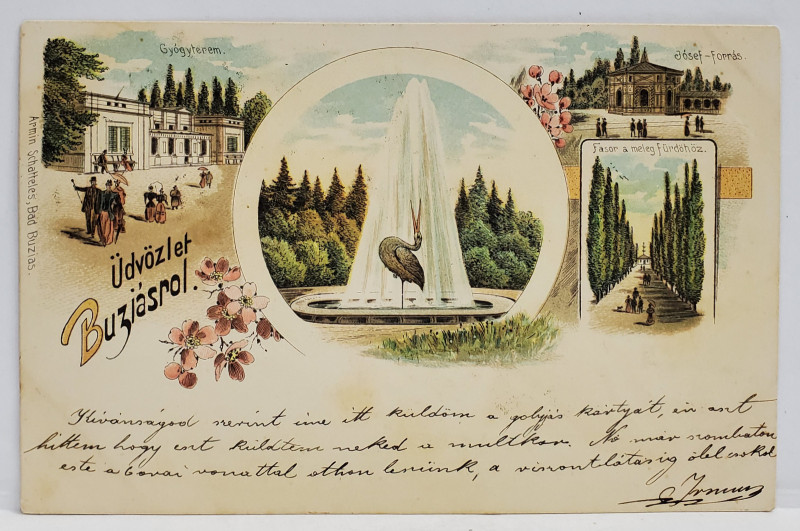 Gyógyterem.
József-Forrás.
Fasor a meleg fürdőhöz.
Armin Schatteles, Bad Buziás.
Üdvözlet
Buziásrol.
Kívánságod szerint ime itt küldöm a golyás kártyát, én azt
hittem hogy ezt küldtem neked a multkor. No már szombaton
este a 6 vonattal othon leszünk, a viszontlátásig ölel csokol